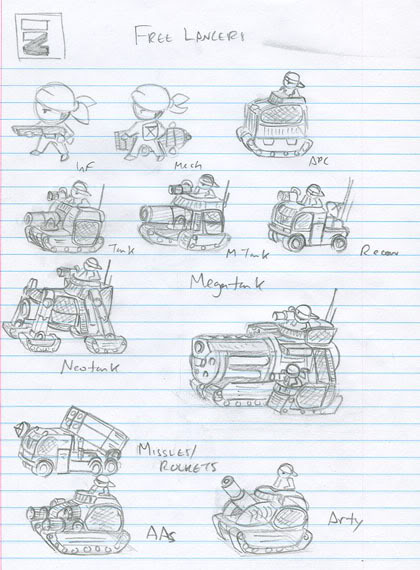 FREE LANCERS
INF
Mech
APC
Tank
M-Tank
Recon
Megatank
Neotank
MISSLES/
ROCKETS
AAs
Arty